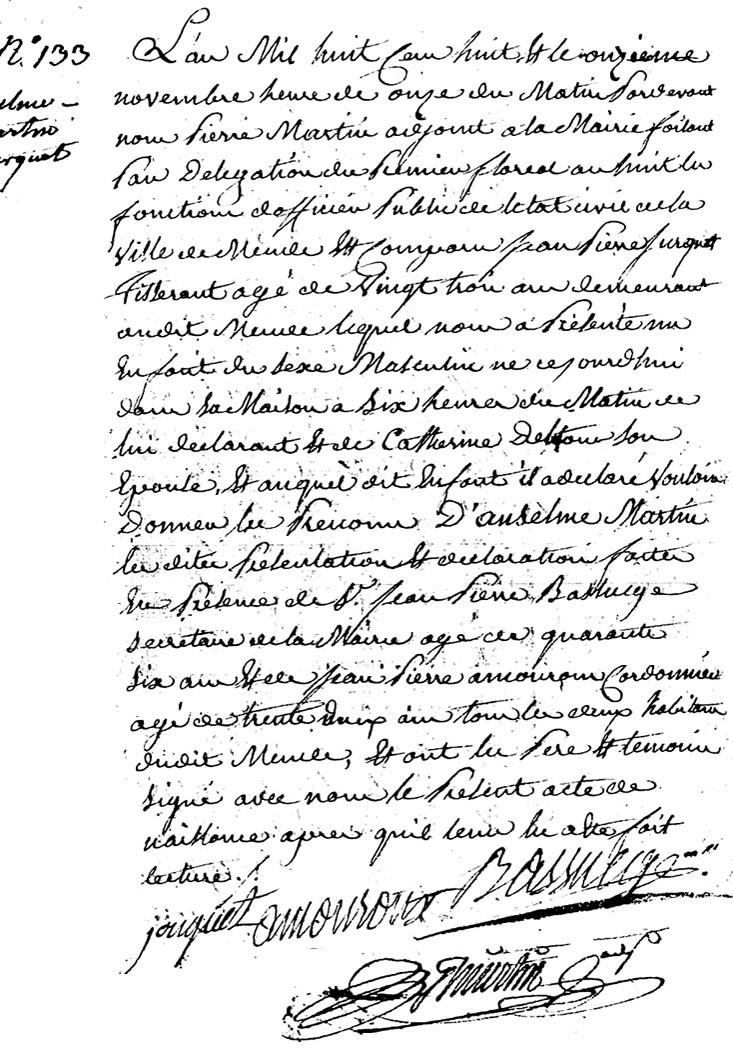 N.° 133
elme
artin
urquet
L'an Mil huit Cent huit Et le onzieme
novembre heure de onze du Matin Pardevant
nous Pierre Martin adjoint a la Mairie faisant
Par Delegation du Premier floreal an huit les
fonctions d'officier Public de letat civil de la
Ville de Mende Est Comparu Jean Pierre Jurquet
Tisserant agé de Vingt trois ans demeurant
audit Mende lequel nous a Présenté un
Enfant du sexe Masculin né ce jourdhui
dans sa Maison a six heures du Matin de
lui declarant Et de Catherine Deltour son
Epouse, Et auquel dit Enfant il a declaré Vouloir
Donner les Prenoms D'anselme Martin
les dites Présentation Et declaration faites
En Présence de Sr. Jean Pierre Bassuege
secretaire de la Mairie agé de quarante
six ans Et de Jean Pierre amouroux Cordonnier
agé de trente deux ans tous les deux habitans
dudit Mende, Et ont les Pere Et temoins
signé avec nous le Présent acte de
naissance apres quil leur en a été fait
lecture ./.
jurquet amouroux Bassuege
P Martin adjt